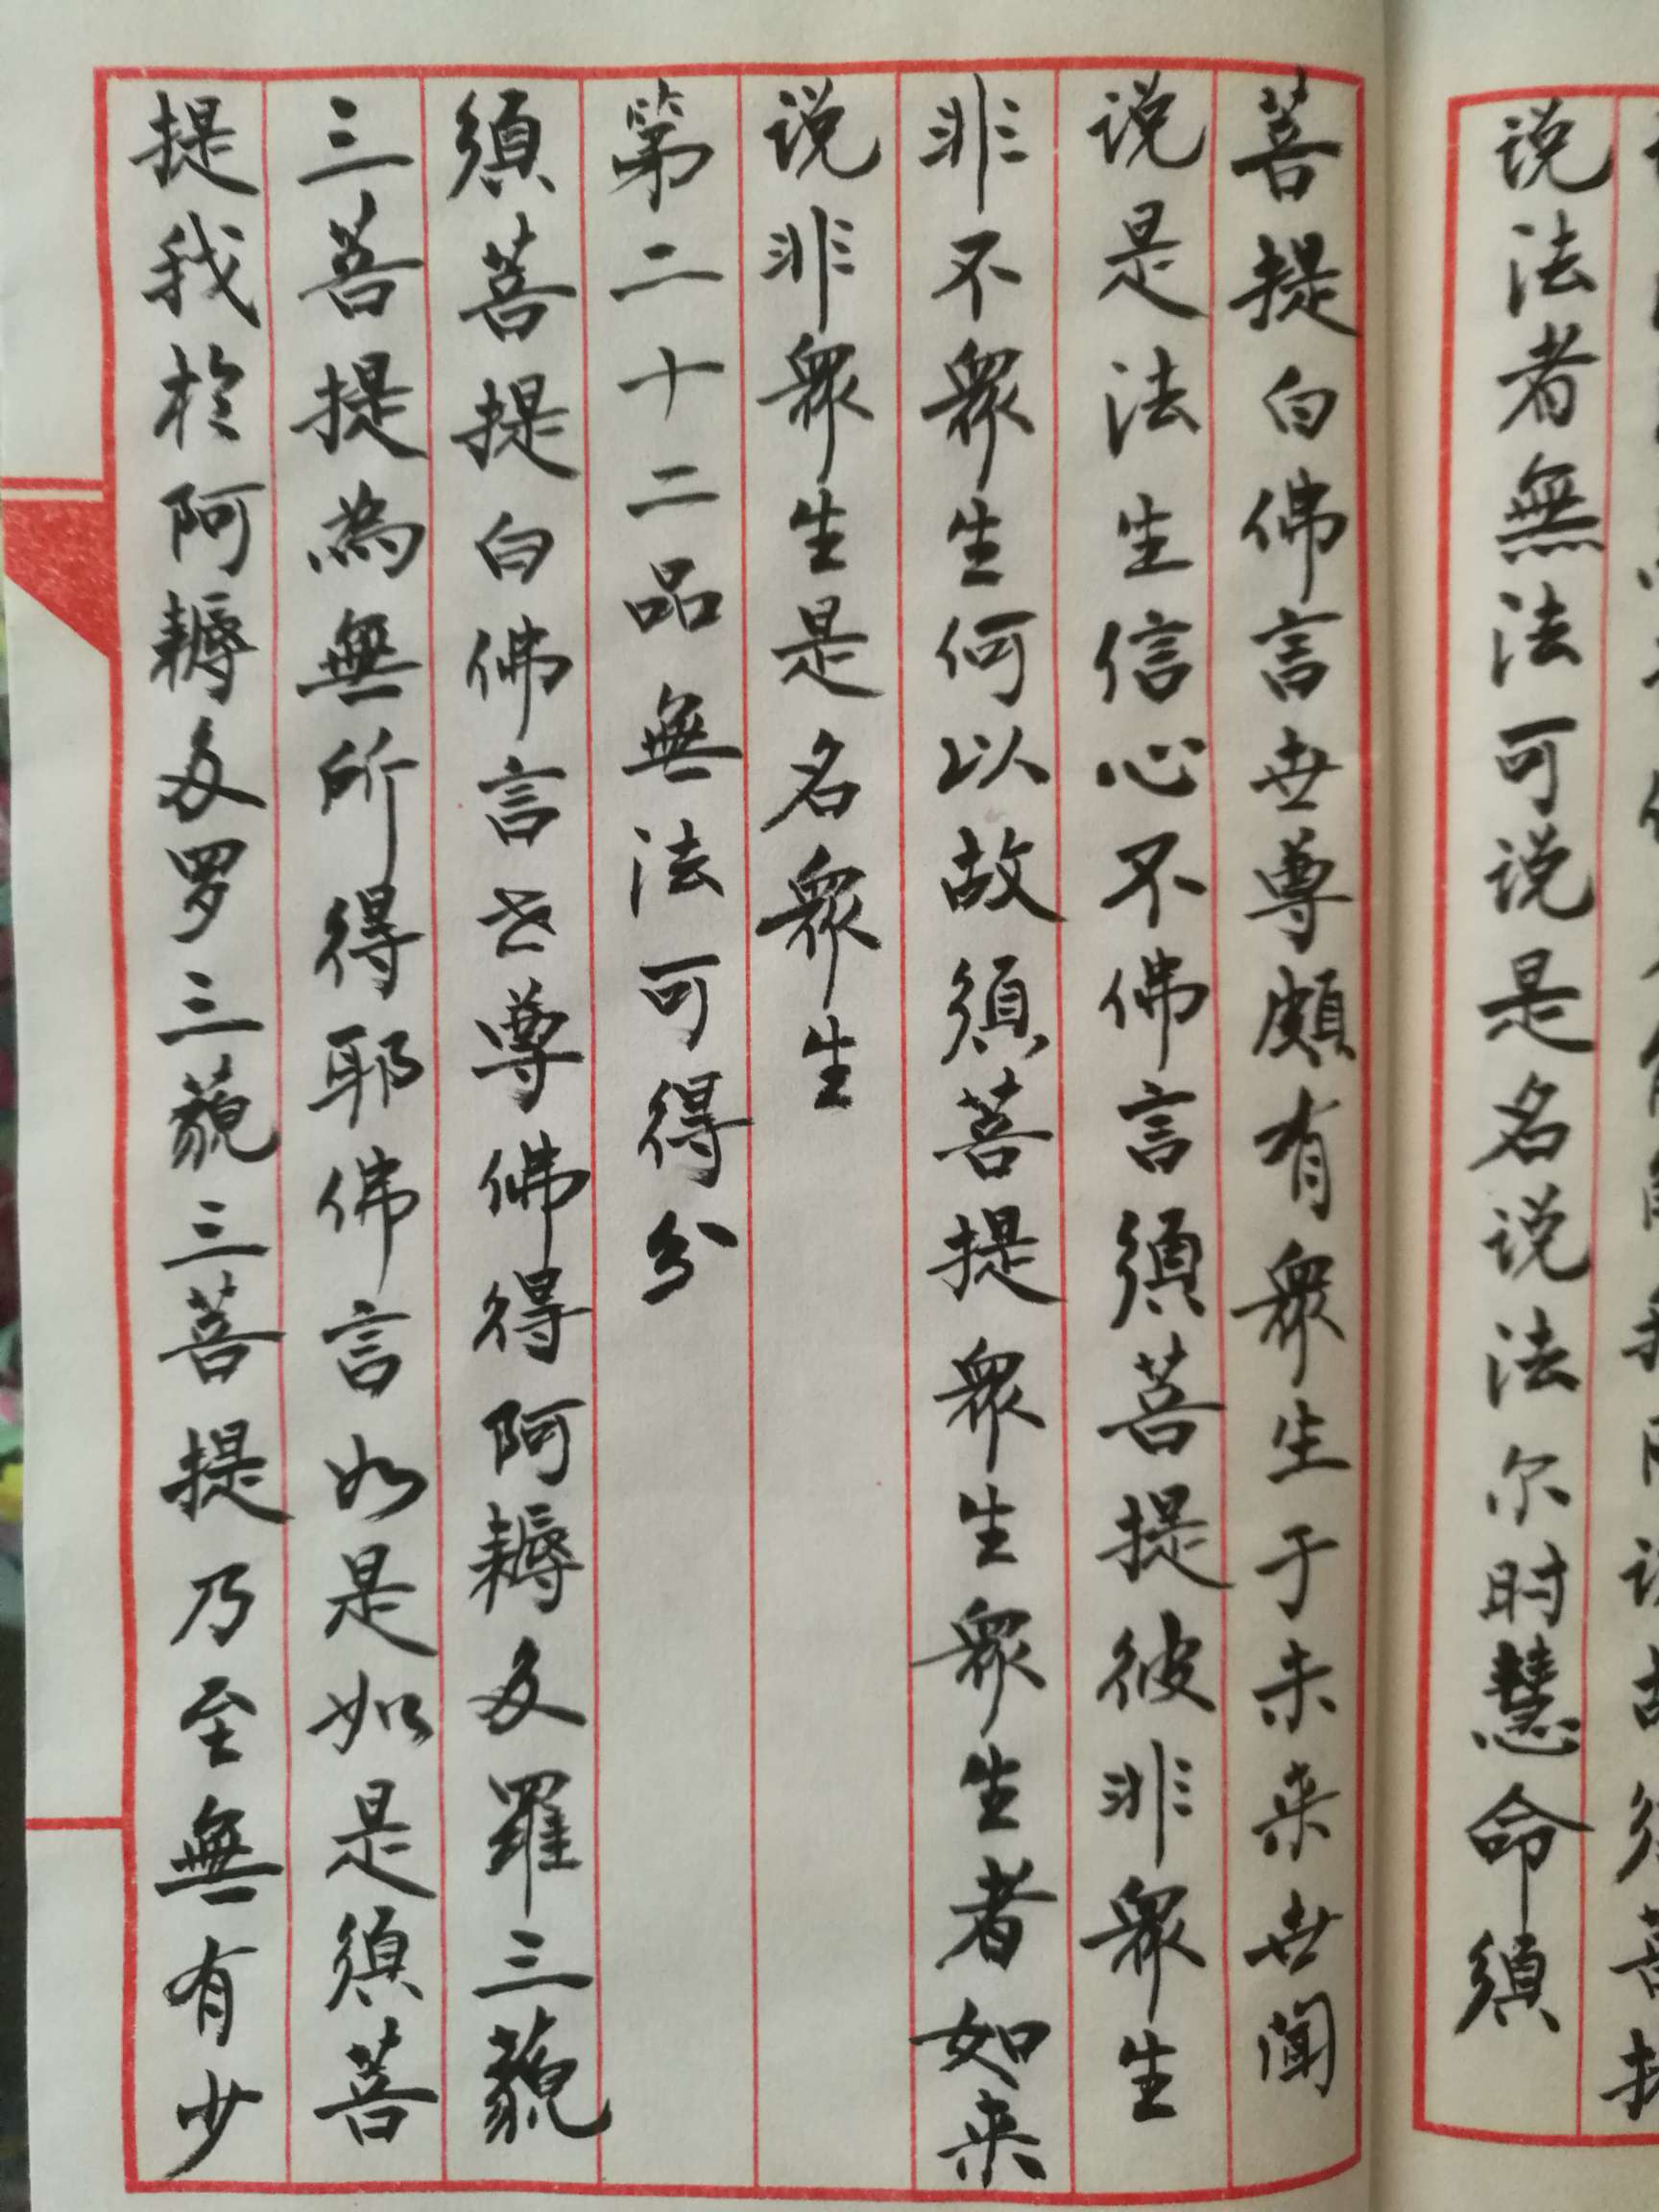 说法者無法可说是名说法尔时慧命須
菩提白佛言世尊頗有衆生于未来世闻
说是法生信心不佛言須菩提彼非衆生
非不衆生何以故須菩提衆生衆生者如来
说非衆生是名衆生
第二十二品無法可得分
須菩提白佛言世尊佛得阿耨多羅三藐
三菩提為無所得耶佛言如是如是須菩
提我於阿耨多罗三藐三菩提乃至無有少